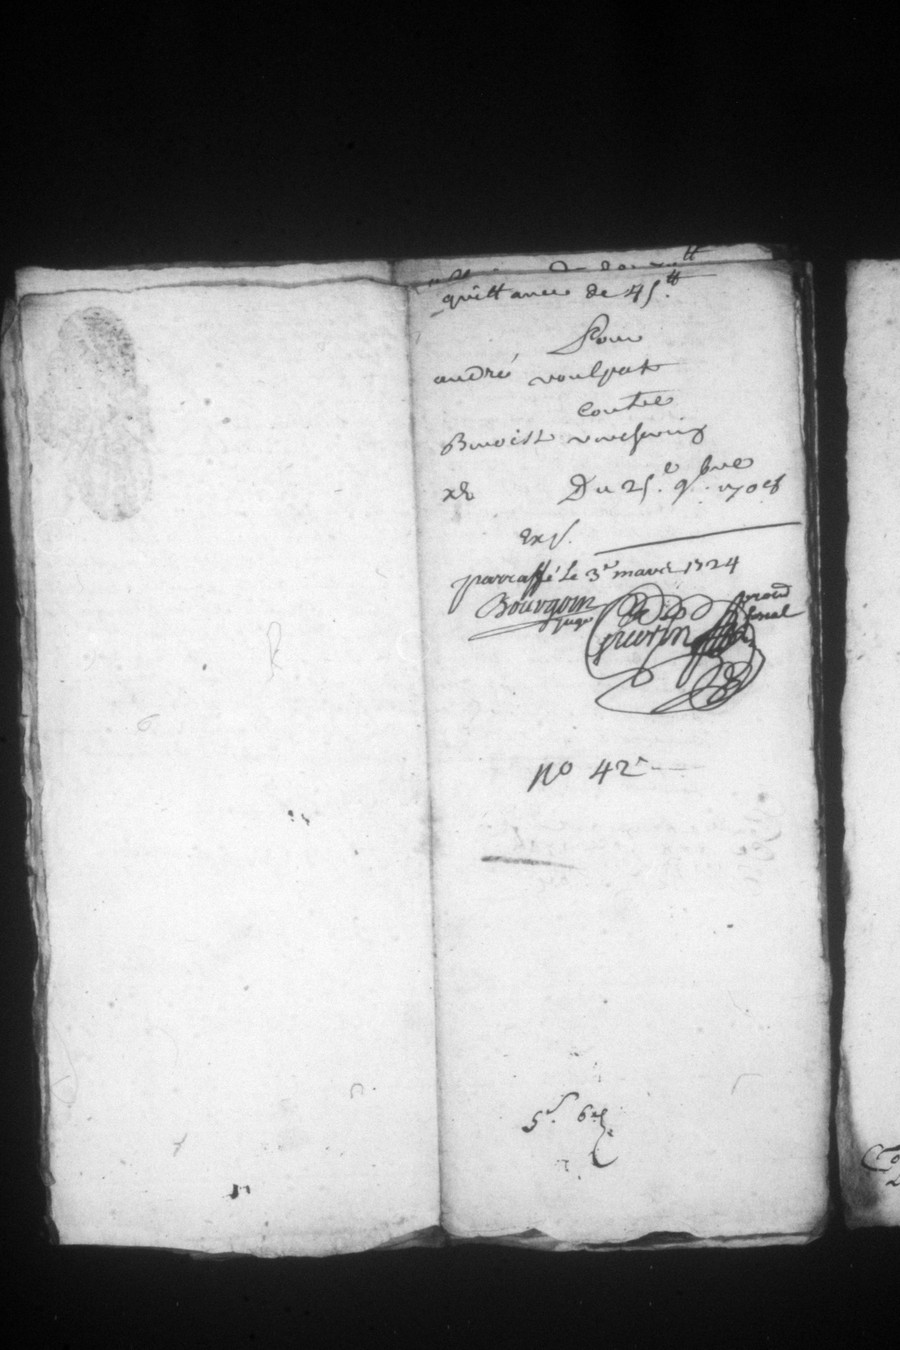 quittance de 45.tt
Pour
andré voulpat
contre
Benoist
Du 25.e 9.bre 1708
Exp.
parraffé le 3e mars 1724
Bourgoin
juge
procu
fiscal
no 42
5s. 6d